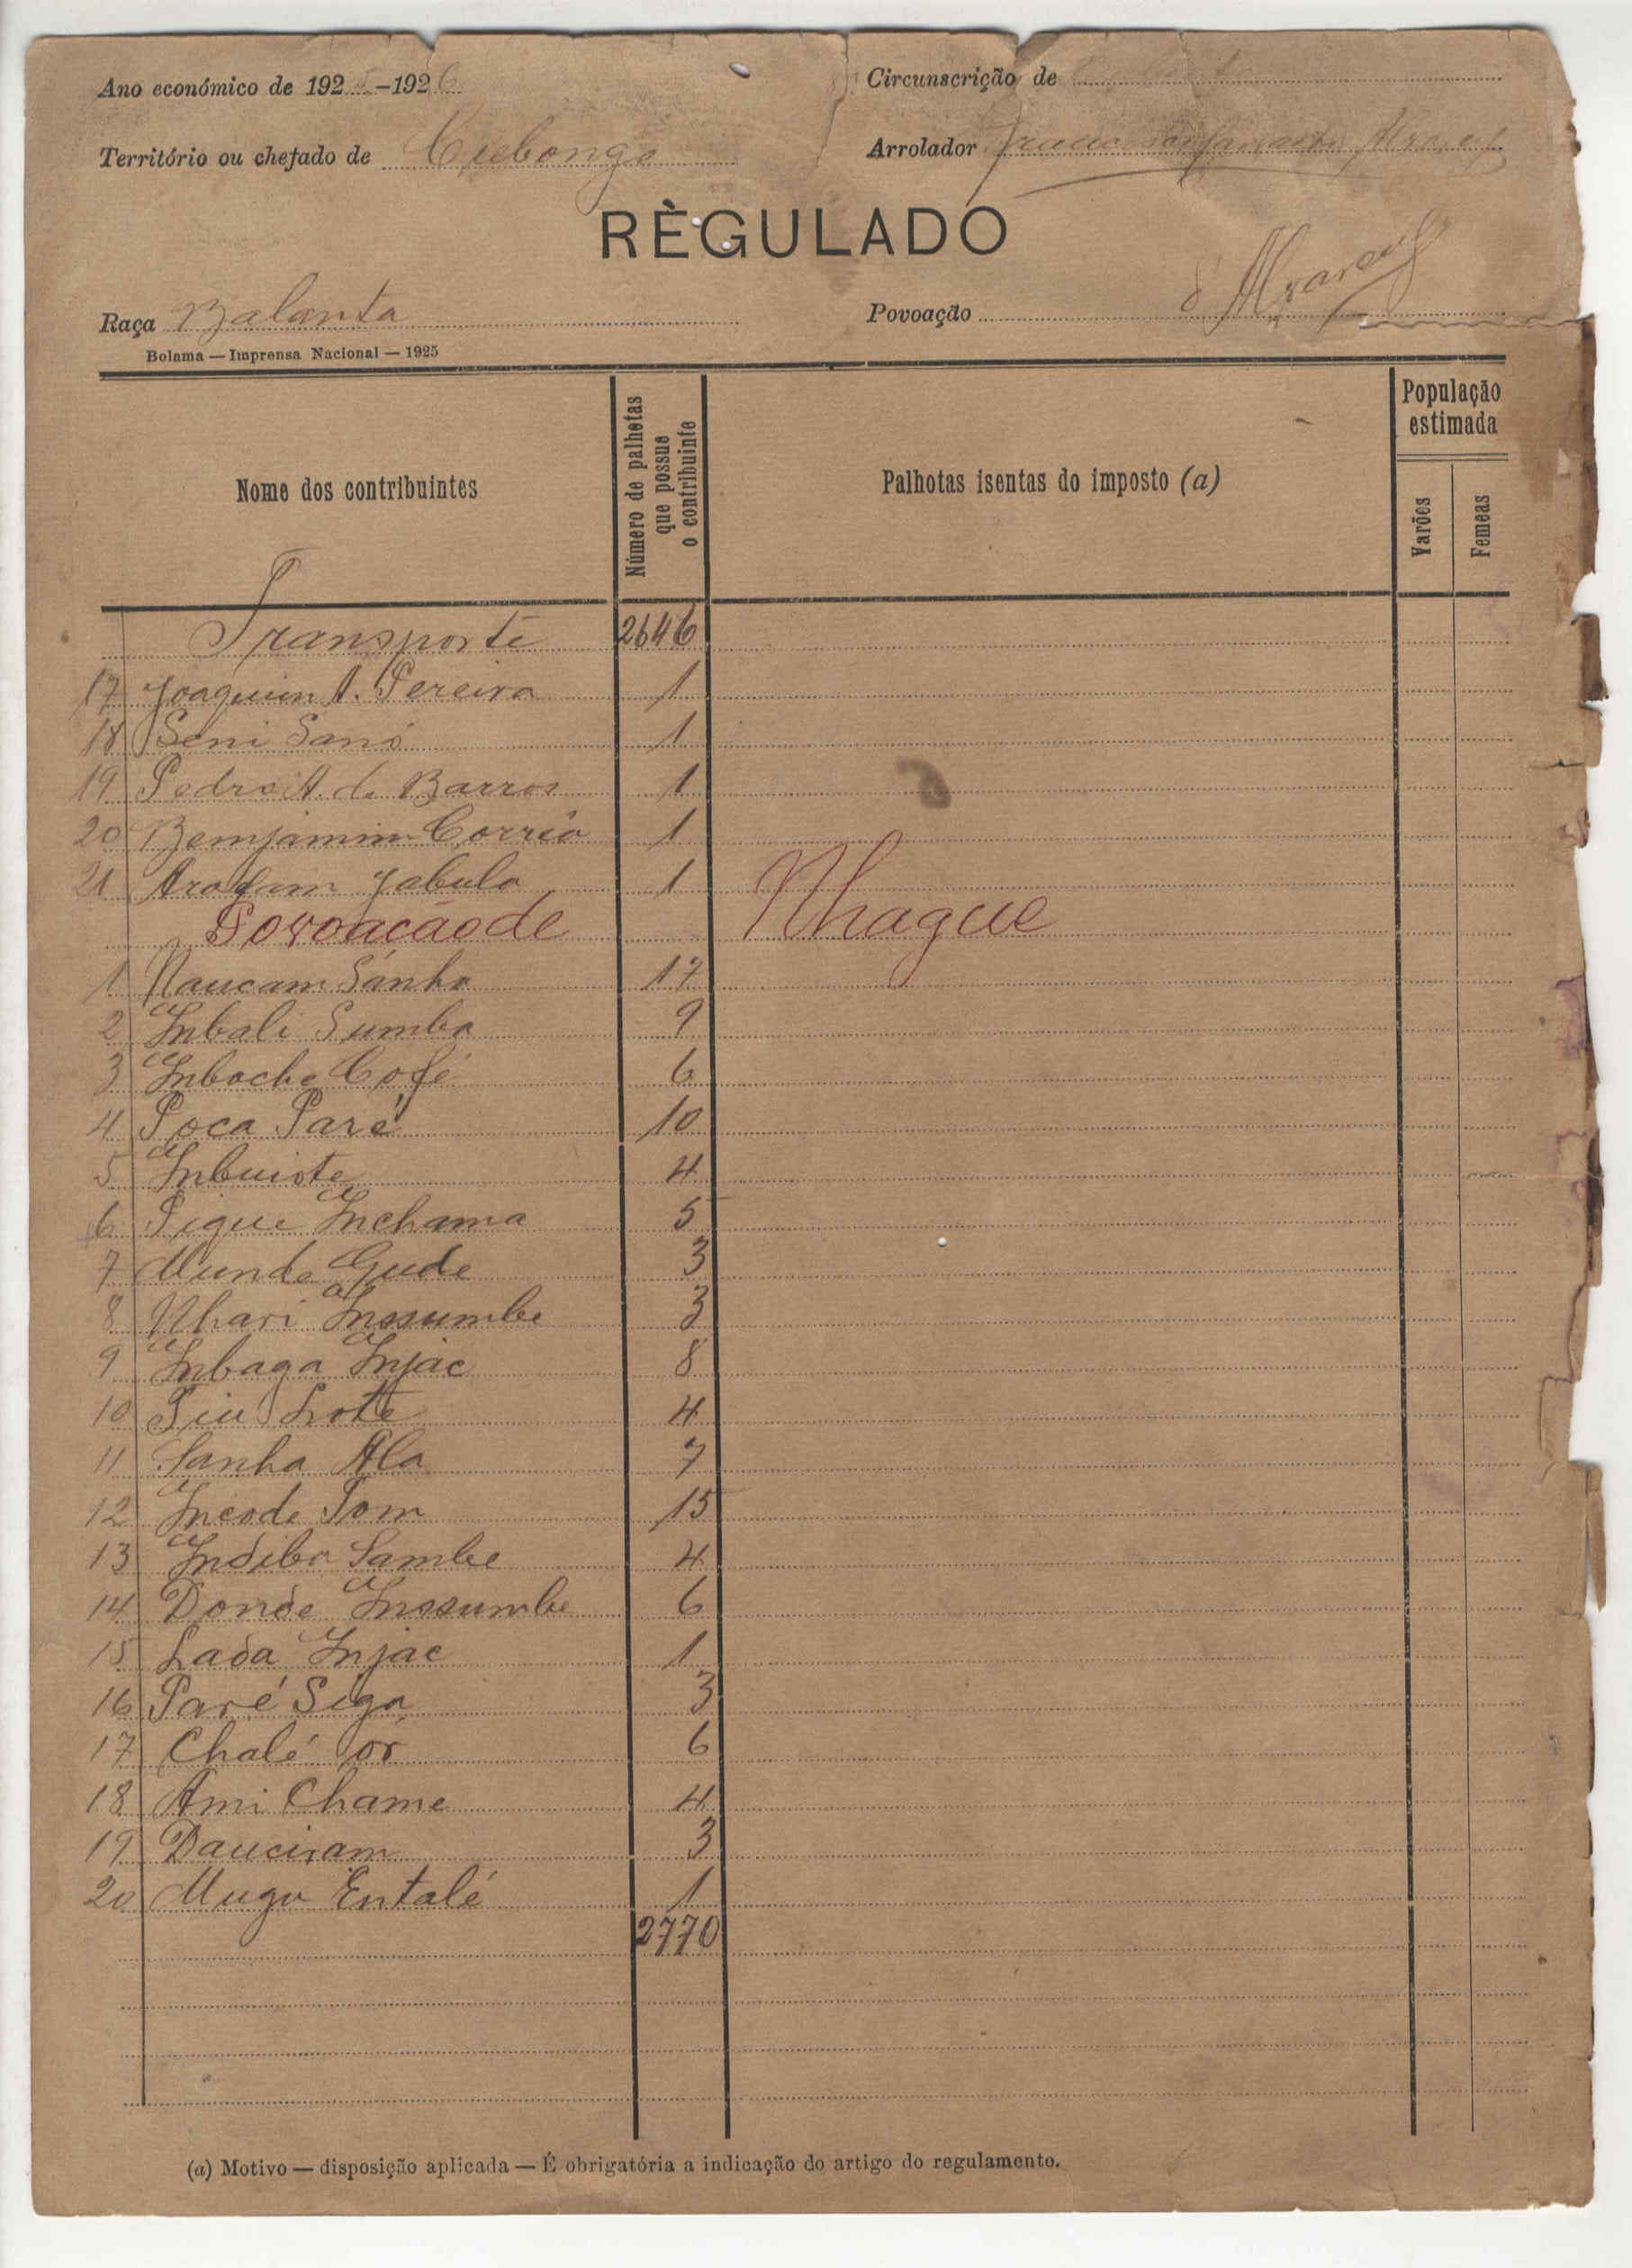 Ano económico de 1925-1926
Circunscrição de
Território ou chefado de Cubonge
Arrolador
RÈGULADO
Raça Balanta
Povoação
Bolama — Imprensa Nacional — 1925
Nome dos contribuintes
Número de palhotas que possue o contribuinte
Palhotas isentas do imposto (a)
População estimada
Varões
Femeas
Transporte 2646
17 Joaquim A. Pereira 1
18 Seni Sanó 1
19 Pedro A. de Barros 1
20 Bemjamim Corrêa 1
21 Arafam Jabula 1
Povoação de Nhague
1 Naucam Sánha 17
2 Inbali Sumba 9
3 Inboche Cofé 6
4 Poca Paré 10
5 Inbuiste 4
6 Sigue Inchama 5
7 Munde Gude 3
8 Nhari Inssumbe 3
9 Inbaga Injac 8
10 Siu Lote 4
11 Sanha Ala 7
12 Incode Tom 15
13 Indiba Sambe 4
14 Donde Inssumbe 6
15 Lada Injac 1
16 Paré Siga 3
17 Chalé Or 6
18 Ami Chame 4
19 Dauciram 3
20 Mugu Entalé 1
2770
(a) Motivo — disposição aplicada — É obrigatória a indicação do artigo do regulamento.